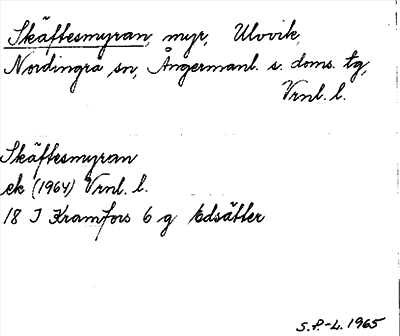 Skäftesmyran, myr, Ulvvik,
Nordingrå sn, Ångermanl. s. doms. tg,
Vrnl. l.
Skäftesmyran
ek (1964) Vrnl. l.
18 I Kramfors 6 g Edsätter
S.P.-L. 1965